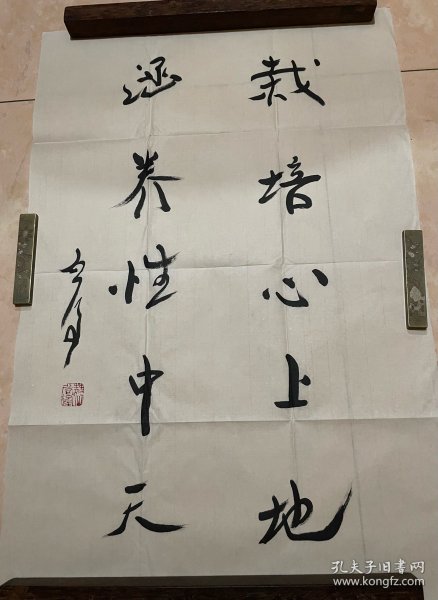 栽培心上地
涵养性中天
孔夫子旧书网
www.kongfz.com